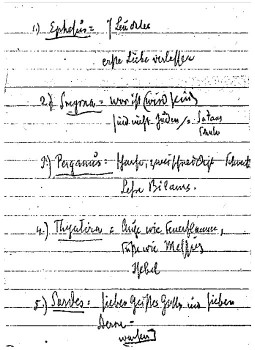 1.) Ephesus = 7 Leuchter
erste Liebe verlassen
2.) Smyrna = war ist (wird sein)
sind nicht Juden / s. Satans
Schule
3.) Pergamus: scharfe, zweischneidige Schwert
Lehre Bileams.
4.) Thyatira = Auge wie Feuerflamme,
Füße wie Messing
Isebel
5.) Sardes: sieben Geister Gottes und sieben
Sterne -